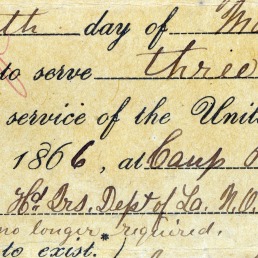 th day of Ma
to serve three
service of the Unit
1866, at Camp
Hd Qrs. Dept of La. N.O.
no longer required.
to exist.)